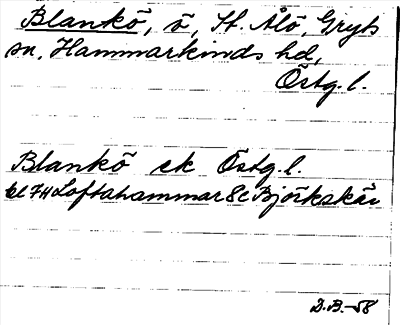 Blankö, ö, St. Ålö, Gryts
sn, Hammarkinds hd,
Östg. l.
Blankö ek Östg. l.
bl 7H Loftahammar 8c Björkskär
D.B. -58